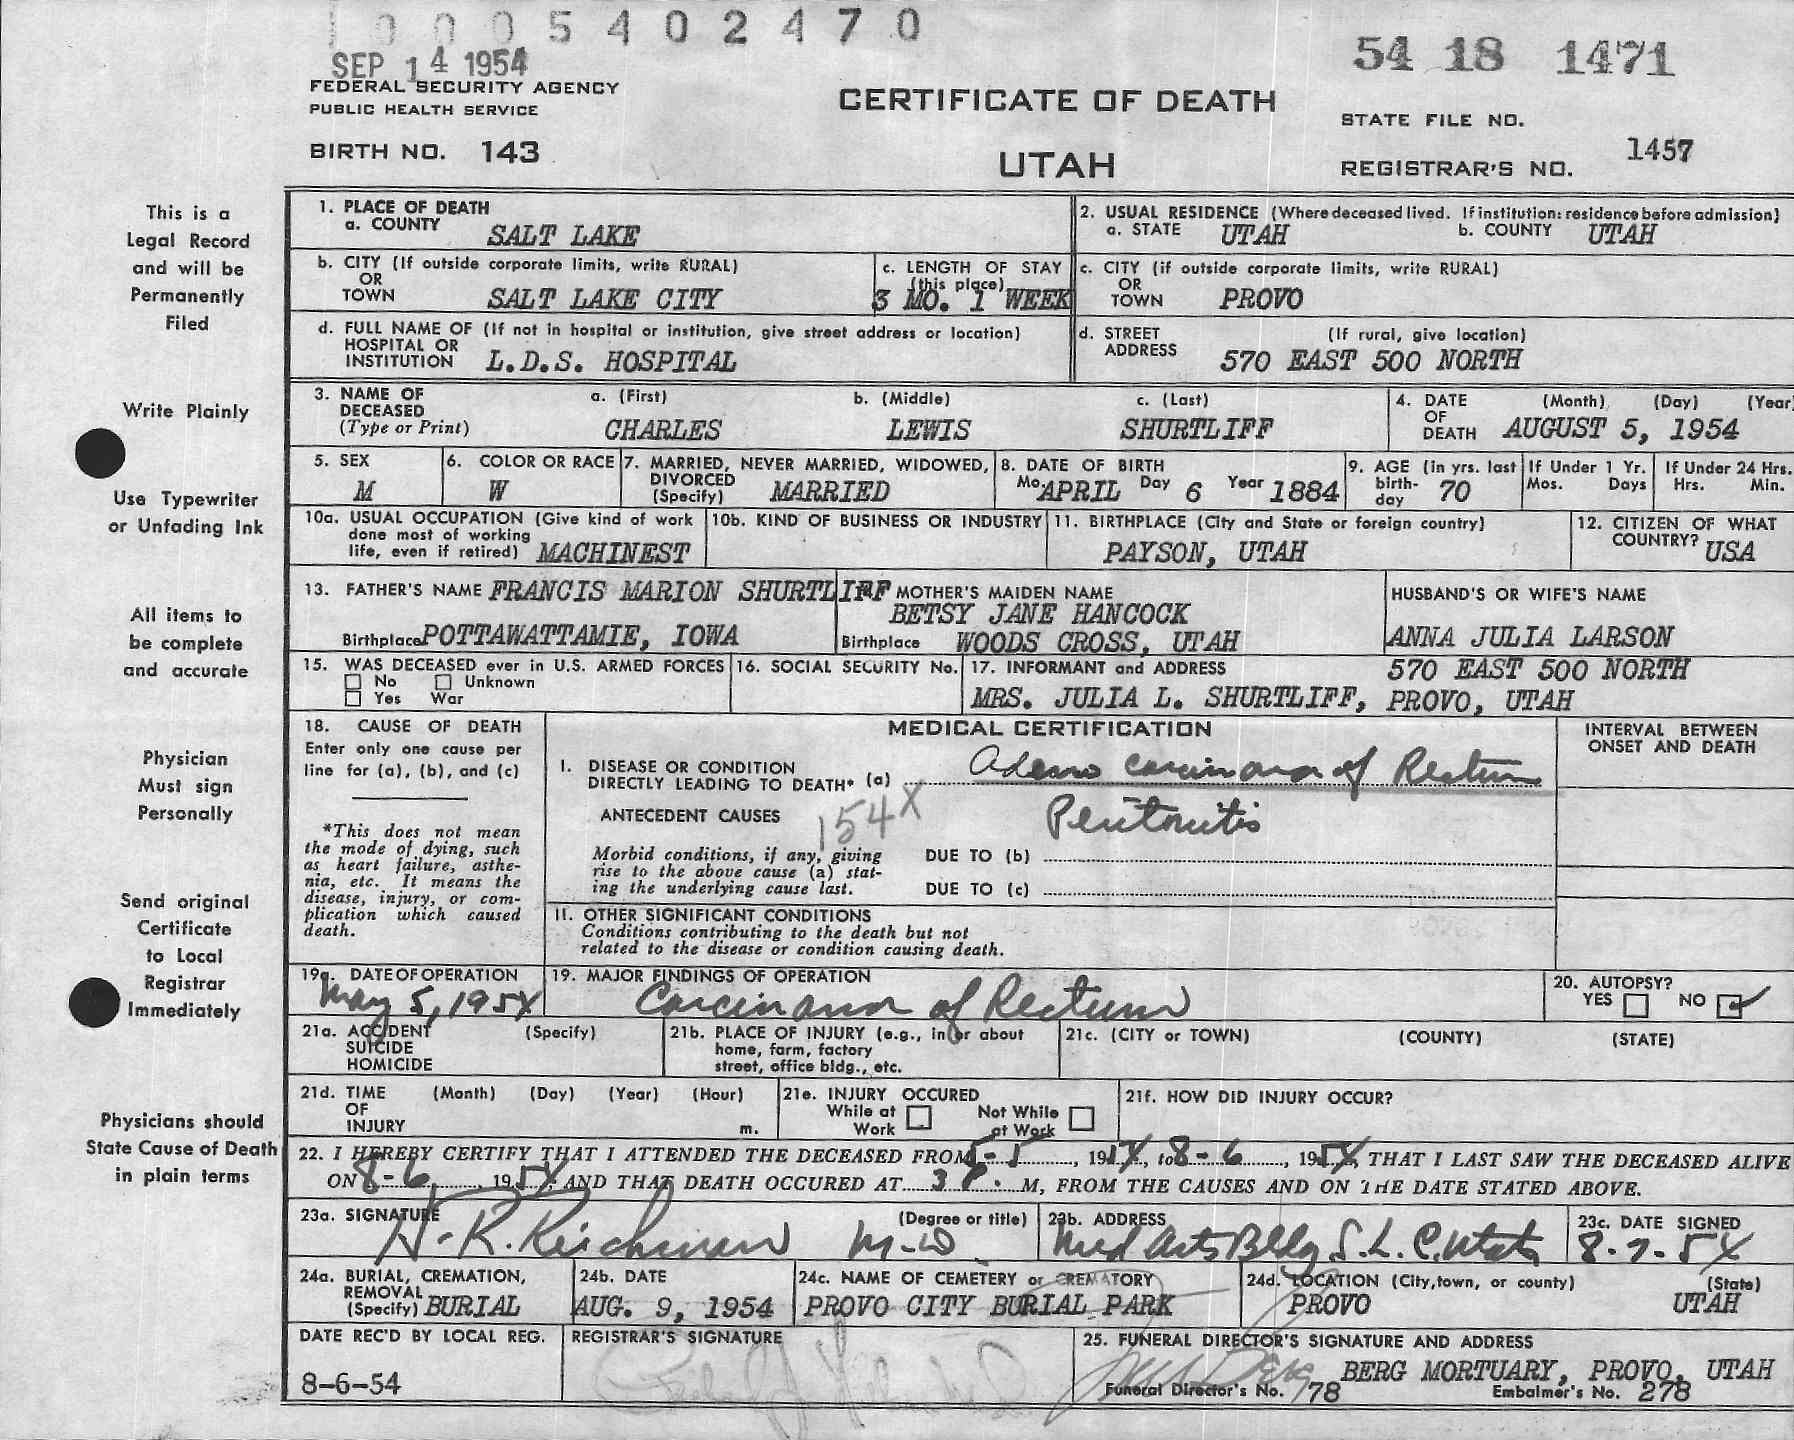 1 0 0 0 5 4 0 2 4 7 0
SEP 14 1954
54 18 1471
FEDERAL SECURITY AGENCY
PUBLIC HEALTH SERVICE
CERTIFICATE OF DEATH
STATE FILE NO.
BIRTH NO. 143
UTAH
REGISTRAR'S NO. 1457
This is a
Legal Record
and will be
Permanently
Filed
Write Plainly
Use Typewriter
or Unfading Ink
All items to
be complete
and accurate
Physician
Must sign
Personally
Send original
Certificate
to Local
Registrar
Immediately
Physicians should
State Cause of Death
in plain terms
1. PLACE OF DEATH
a. COUNTY SALT LAKE
2. USUAL RESIDENCE (Where deceased lived. If institution: residence before admission)
a. STATE UTAH b. COUNTY UTAH
b. CITY (If outside corporate limits, write RURAL)
OR
TOWN SALT LAKE CITY
c. LENGTH OF STAY
(this place)
3 MO. 1 WEEK
c. CITY (if outside corporate limits, write RURAL)
OR
TOWN PROVO
d. FULL NAME OF (If not in hospital or institution, give street address or location)
HOSPITAL OR
INSTITUTION L.D.S. HOSPITAL
d. STREET (If rural, give location)
ADDRESS 570 EAST 500 NORTH
3. NAME OF
DECEASED
(Type or Print)
a. (First) b. (Middle) c. (Last)
CHARLES LEWIS SHURTLIFF
4. DATE (Month) (Day) (Year)
OF
DEATH AUGUST 5, 1954
5. SEX
M
6. COLOR OR RACE
W
7. MARRIED, NEVER MARRIED, WIDOWED,
DIVORCED
(Specify) MARRIED
8. DATE OF BIRTH
Mo. APRIL Day 6 Year 1884
9. AGE (in yrs. last
birth-
day 70
If Under 1 Yr.
Mos. Days
If Under 24 Hrs.
Hrs. Min.
10a. USUAL OCCUPATION (Give kind of work
done most of working
life, even if retired) MACHINEST
10b. KIND OF BUSINESS OR INDUSTRY
11. BIRTHPLACE (City and State or foreign country)
PAYSON, UTAH
12. CITIZEN OF WHAT
COUNTRY? USA
13. FATHER'S NAME FRANCIS MARION SHURTLIFF
Birthplace POTTAWATTAMIE, IOWA
MOTHER'S MAIDEN NAME
BETSY JANE HANCOCK
Birthplace WOODS CROSS, UTAH
HUSBAND'S OR WIFE'S NAME
ANNA JULIA LARSON
15. WAS DECEASED ever in U.S. ARMED FORCES
No Unknown
Yes War
16. SOCIAL SECURITY No.
17. INFORMANT and ADDRESS 570 EAST 500 NORTH
MRS. JULIA L. SHURTLIFF, PROVO, UTAH
18. CAUSE OF DEATH
Enter only one cause per
line for (a), (b), and (c)
*This does not mean
the mode of dying, such
as heart failure, asthe-
nia, etc. It means the
disease, injury, or com-
plication which caused
death.
MEDICAL CERTIFICATION
INTERVAL BETWEEN
ONSET AND DEATH
I. DISEASE OR CONDITION
DIRECTLY LEADING TO DEATH* (a) Adeno carcinoma of Rectum
ANTECEDENT CAUSES 154X Peritonitis
Morbid conditions, if any, giving
rise to the above cause (a) stat-
ing the underlying cause last.
DUE TO (b)
DUE TO (c)
II. OTHER SIGNIFICANT CONDITIONS
Conditions contributing to the death but not
related to the disease or condition causing death.
19a. DATE OF OPERATION
May 5, 1954
19. MAJOR FINDINGS OF OPERATION
Carcinoma of Rectum
20. AUTOPSY?
YES NO
21a. ACCIDENT (Specify)
SUICIDE
HOMICIDE
21b. PLACE OF INJURY (e.g., in or about
home, farm, factory
street, office bldg., etc.
21c. (CITY or TOWN) (COUNTY) (STATE)
21d. TIME (Month) (Day) (Year) (Hour)
OF
INJURY m.
21e. INJURY OCCURED
While at Not While
Work at Work
21f. HOW DID INJURY OCCUR?
22. I HEREBY CERTIFY THAT I ATTENDED THE DECEASED FROM 5-5, 1954, to 8-6, 1954, THAT I LAST SAW THE DECEASED ALIVE
ON 8-6, 1954, AND THAT DEATH OCCURED AT 3 P. M, FROM THE CAUSES AND ON THE DATE STATED ABOVE.
23a. SIGNATURE (Degree or title)
H. R. Reichman M.D.
23b. ADDRESS
Med Arts Bldg S.L.C. Utah
23c. DATE SIGNED
8-7-54
24a. BURIAL, CREMATION,
REMOVAL
(Specify) BURIAL
24b. DATE
AUG. 9, 1954
24c. NAME OF CEMETERY or CREMATORY
PROVO CITY BURIAL PARK
24d. LOCATION (City, town, or county) (State)
PROVO UTAH
DATE REC'D BY LOCAL REG.
8-6-54
REGISTRAR'S SIGNATURE
25. FUNERAL DIRECTOR'S SIGNATURE AND ADDRESS
BERG MORTUARY, PROVO, UTAH
Funeral Director's No. 78 Embalmer's No. 278